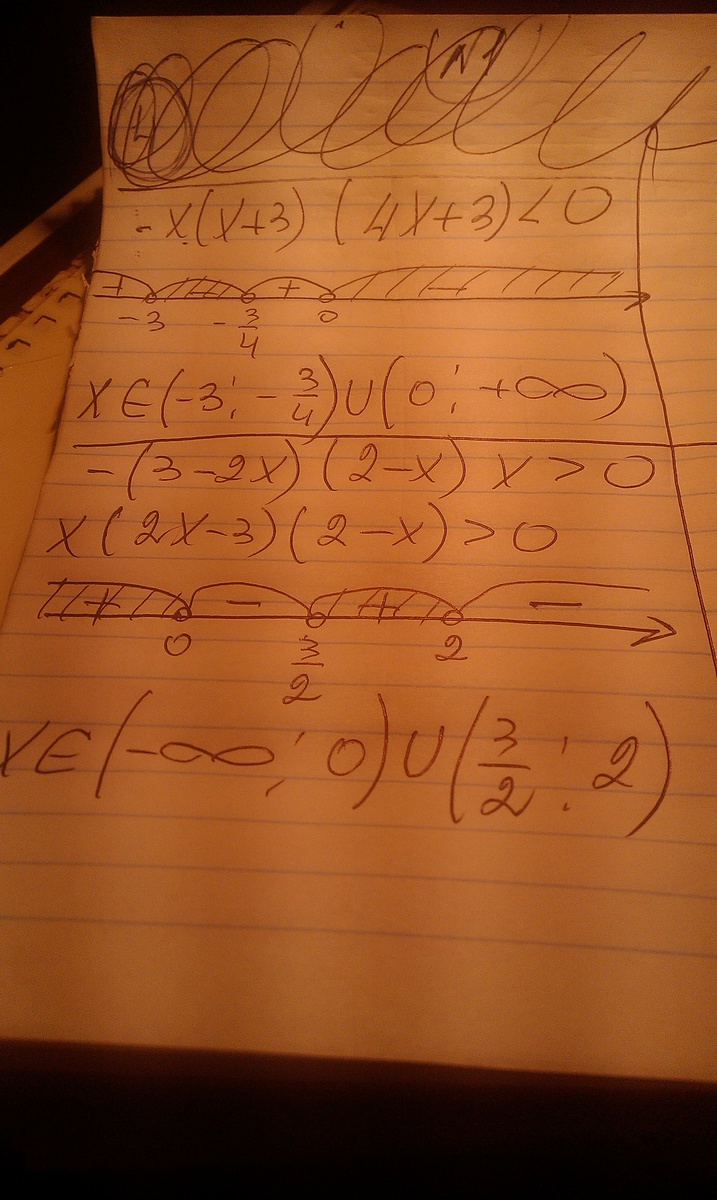 N1
-x(x+3) (4x+3)<0
+ - + -
-3 -3/4 0
x∈(-3; -3/4)∪(0; +∞)
-(3-2x) (2-x) x>0
x(2x-3)(2-x)>0
+ - + -
0 3/2 2
x∈(-∞; 0)∪(3/2; 2)